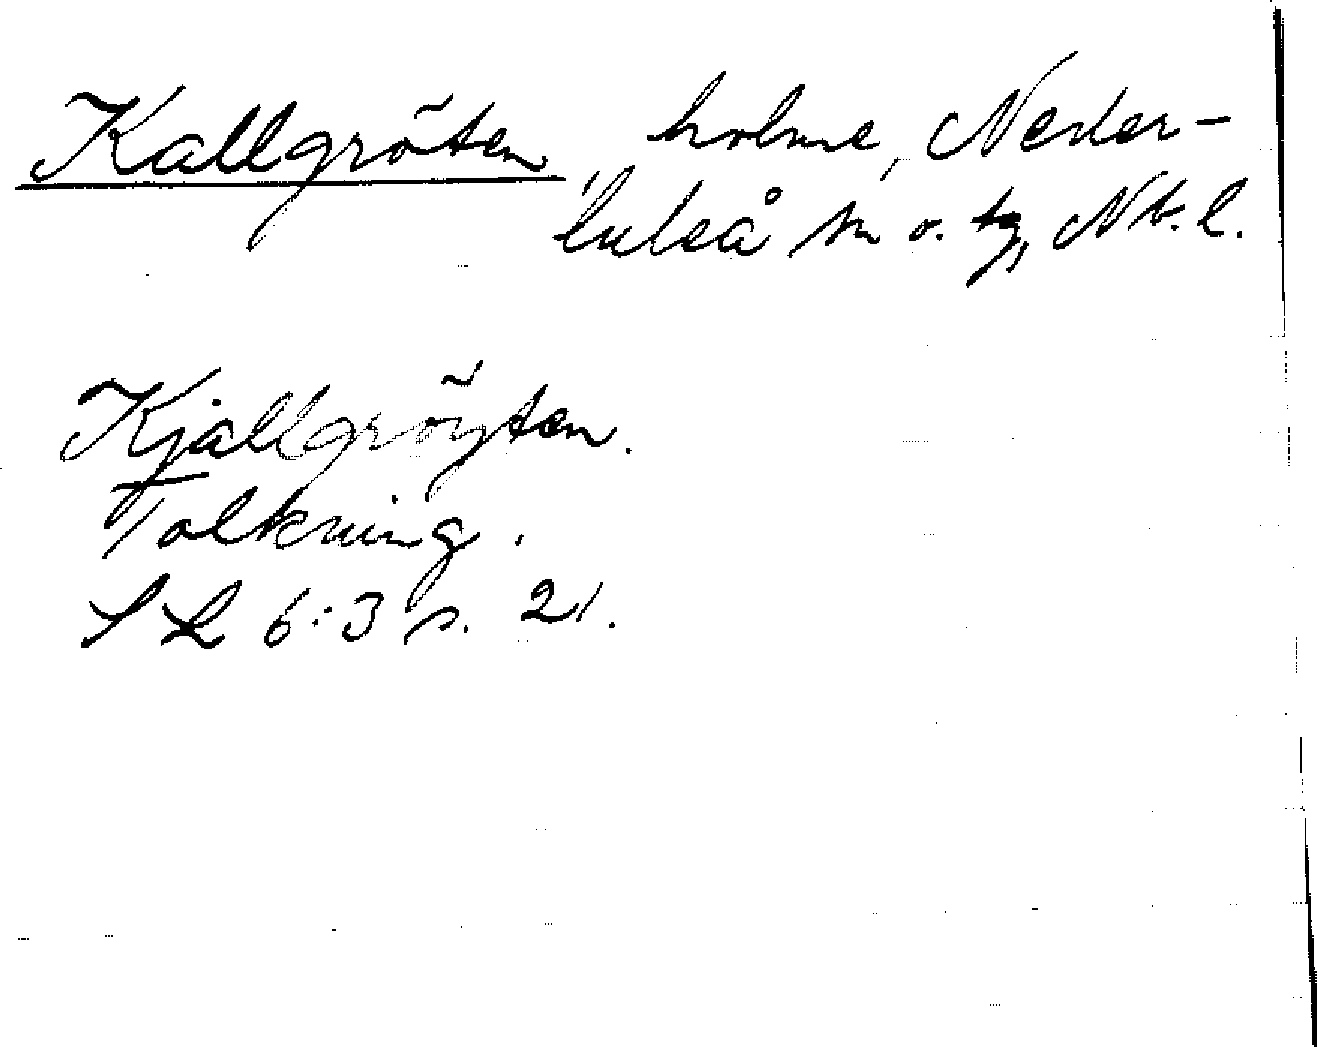 Kallgröten, holme, Neder-
luleå sn o. tg, Nb. l.
Kjallgröyten.
Tolkning.
SL 6:3 s. 21.